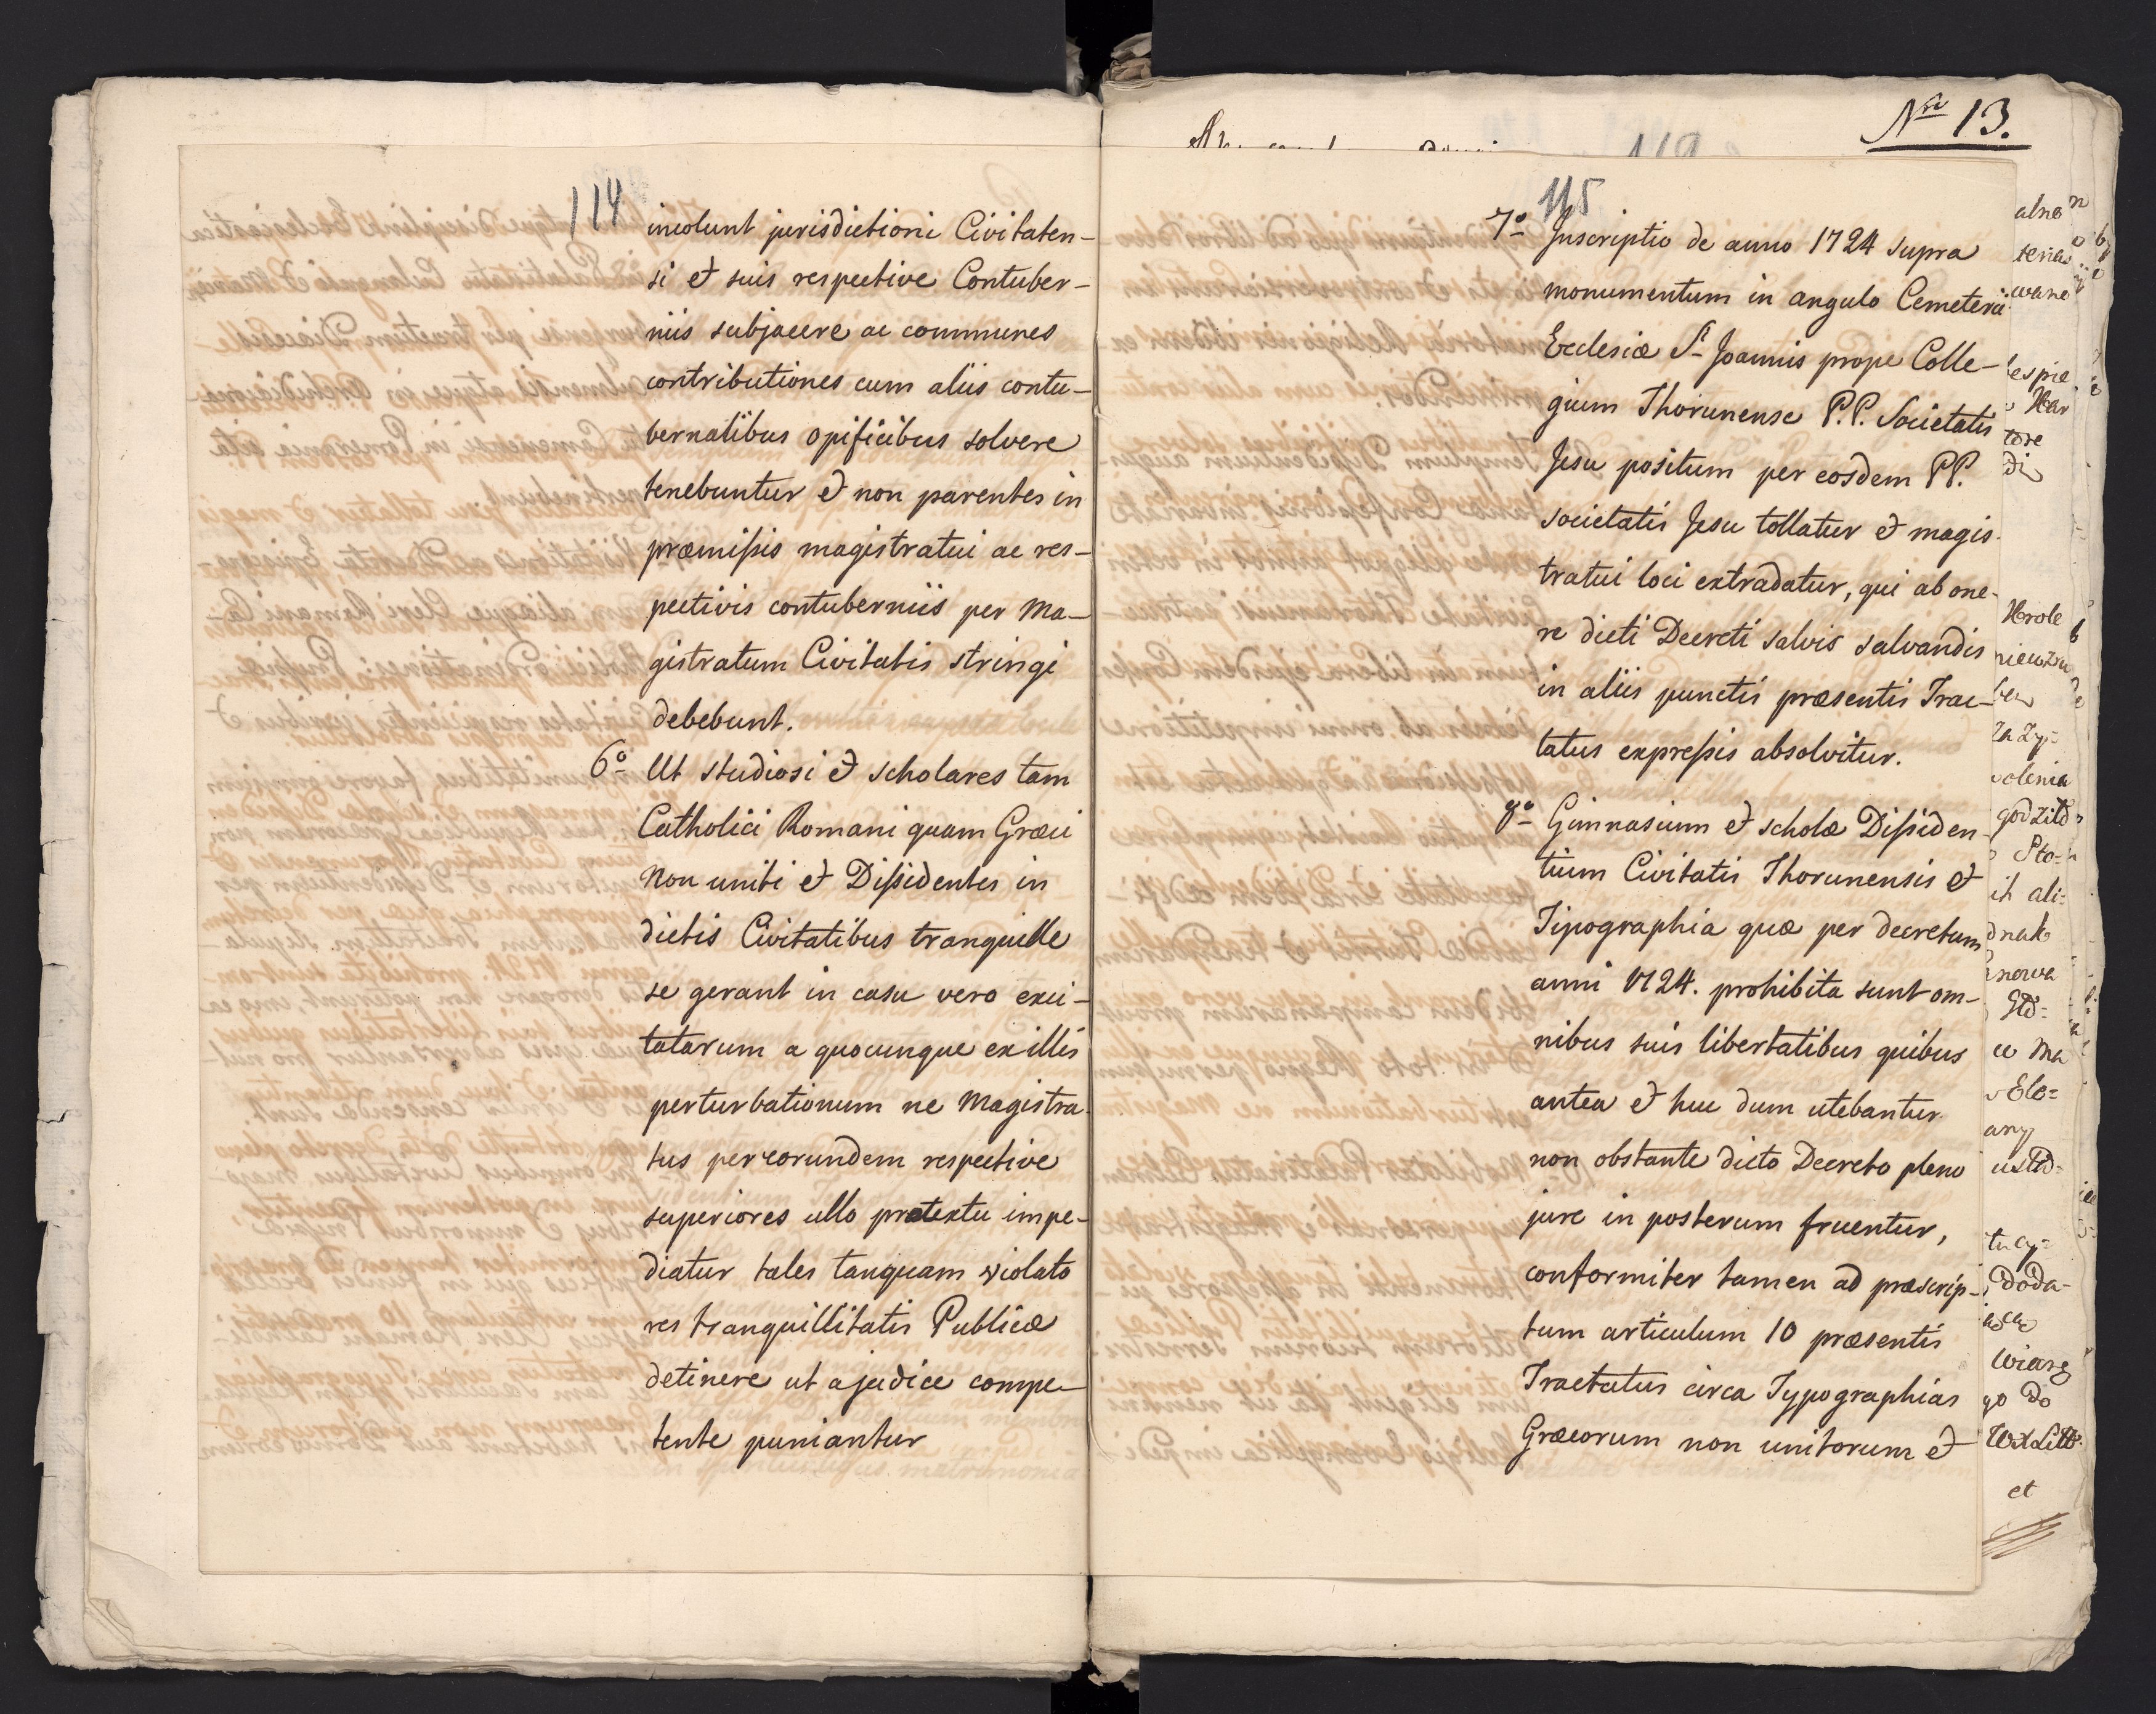 114
incolunt jurisdictioni Civitaten-
si et suis respective Contuber-
niis subjacere ac communes
contributiones cum aliis contu-
bernalibus opificibus solvere
tenebuntur et non parentes in
præmissis magistratui ac res-
pectivis contuberniis per Ma-
gistratum Civitatis stringi
debebunt.
6o Ut studiosi et scholares tam
Catholici Romani quam Græci
Non uniti et Dissidentes in
dictis Civitatibus tranquille
se gerant in casu vero exci-
tatarum a quocunque ex illis
perturbationum ne Magistra-
tus per eorundem respective
superiores ullo prætextu impe-
diatur tales tanquam violato
res tranquillitatis Publicæ
detinere ut a judice compe-
tente puniantur
Nro 13.
119
115
7o Inscriptio de anno 1724 supra
monumentum in angulo Cemeterii
Ecclesiæ St Joannis prope Colle-
gium Thorunense P.P. Societatis
Jesu positum per eosdem PP.
societatis Jesu tollatur et magis-
tratui loci extradatur, qui ab one-
re dicti Decreti salvis salvandis
in aliis punctis præsentis Trac-
tatus expressis absolvitur.
8o Gimnasium et scholæ Dissiden-
tium Civitatis Thorunensis et
Tipographia quæ per decretum
anni 1724. prohibita sunt om-
nibus suis libertatibus quibus
antea et huc dum utebantur
non obstante dicto Decreto pleno
jure in posterum fruentur,
conformiter tamen ad præscrip-
tum articulum 10 præsentis
Tractatus circa Typographias
Græcorum non unitorum et